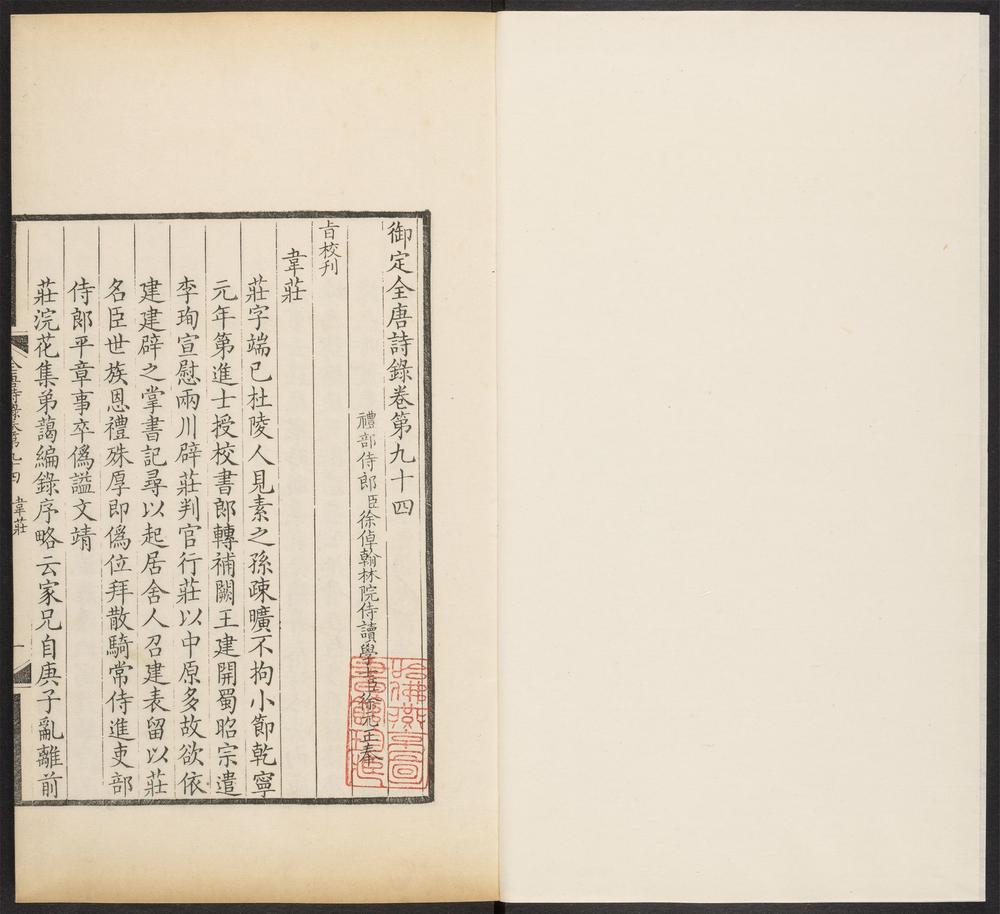 御定全唐詩錄卷第九十四
禮部侍郎臣徐倬翰林院侍讀學士臣徐元正奉
旨校刊
韋莊
莊字端已杜陵人見素之孫疎曠不拘小節乾寧
元年第進士授校書郎轉補闕王建開蜀昭宗遣
李珣宣慰兩川辟莊判官行莊以中原多故欲依
建建辟之掌書記尋以起居舍人召建表留以莊
名臣世族恩禮殊厚即僞位拜散騎常侍進吏部
侍郎平章事卒僞謚文靖
莊浣花集弟藹編錄序略云家兄自庚子亂離前
全唐詩錄卷第九十四 韋莊 一
哈佛燕京圖書館珍藏印